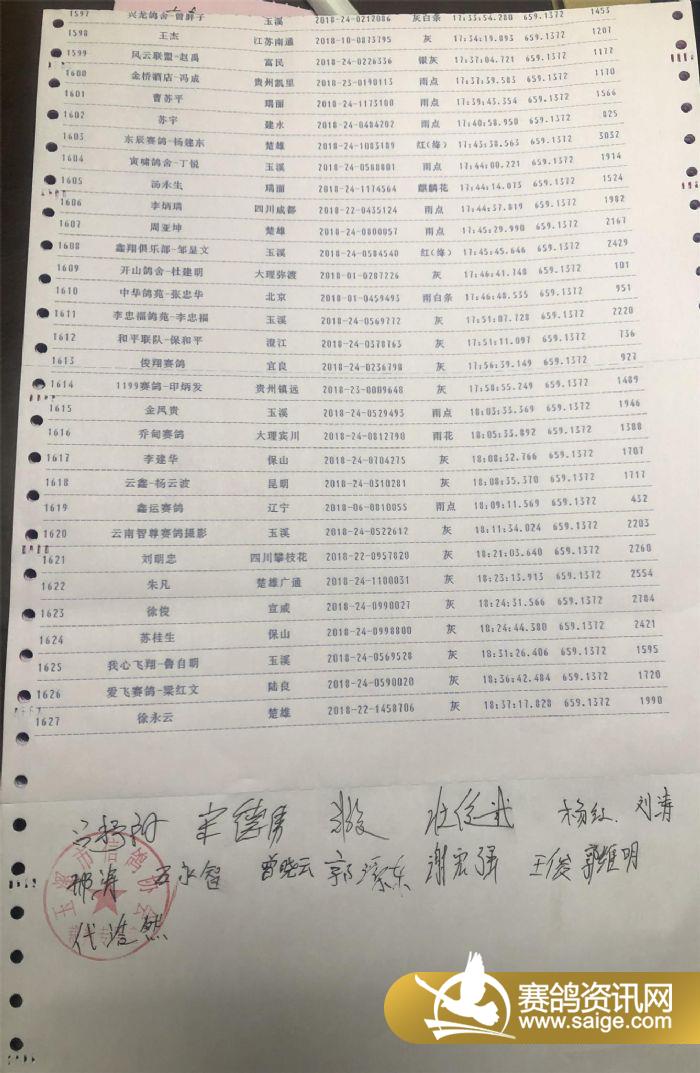 1597 兴龙鸽舍-曾胖子 玉溪 2018-24-0212086 灰白条 17:33:54.280 659.1372 1453
1598 王杰 江苏南通 2018-10-0873795 灰 17:34:19.893 659.1372 1207
1599 风云联盟-赵禹 富民 2018-24-0226336 银灰 17:37:04.721 659.1372 1172
1600 金桥酒店-冯成 贵州凯里 2018-23-0190113 雨点 17:37:39.583 659.1372 1170
1601 曹苏平 瑞丽 2018-24-1173100 雨点 17:39:43.354 659.1372 1566
1602 苏宇 建水 2018-24-0484202 雨点 17:40:58.950 659.1372 825
1603 东辰赛鸽-杨建东 楚雄 2018-24-1083189 红(绛) 17:43:38.563 659.1372 3032
1604 寅啸鸽舍-丁锐 玉溪 2018-24-0560801 雨点 17:44:00.221 659.1372 1914
1605 汤永生 瑞丽 2018-24-1174564 麒麟花 17:44:14.073 659.1372 1524
1606 李炳瑞 四川成都 2018-22-0435124 雨点 17:44:37.819 659.1372 1982
1607 周亚坤 楚雄 2018-24-0800057 雨点 17:45:29.990 659.1372 2167
1608 鑫翔俱乐部-邹显文 玉溪 2018-24-0584540 红(绛) 17:45:45.646 659.1372 2429
1609 开山鸽舍-杜建明 大理弥渡 2018-01-0287226 灰 17:46:41.748 659.1372 101
1610 中华鸽苑-张忠华 北京 2018-01-0459493 雨白条 17:46:48.535 659.1372 951
1611 李忠福鸽苑-李忠福 玉溪 2018-24-0569772 灰 17:51:07.728 659.1372 2220
1612 和平联队-保和平 澄江 2018-24-0378763 灰 17:51:11.097 659.1372 736
1613 俊翔赛鸽 宜良 2018-24-0236798 灰 17:56:39.149 659.1372 927
1614 1199赛鸽-印炳发 贵州镇远 2018-23-0009648 灰 17:58:55.249 659.1372 1489
1615 金凤贵 玉溪 2018-24-0529493 雨点 18:03:33.369 659.1372 1946
1616 乔甸赛鸽 大理宾川 2018-24-0812790 雨花 18:05:33.892 659.1372 1388
1617 李建华 保山 2018-24-0704275 灰 18:08:32.766 659.1372 1707
1618 云鑫-杨云波 昆明 2018-24-0310281 灰 18:08:35.370 659.1372 1717
1619 鑫运赛鸽 辽宁 2018-06-0810055 雨点 18:09:11.569 659.1372 432
1620 云南智尊赛鸽摄影 玉溪 2018-24-0522612 灰 18:11:34.024 659.1372 2203
1621 刘朝忠 四川攀枝花 2018-22-0957820 灰 18:21:03.640 659.1372 2260
1622 朱凡 楚雄广通 2018-24-1100031 灰 18:23:13.913 659.1372 2554
1623 徐俊 宣威 2018-24-0990027 灰 18:24:31.566 659.1372 2704
1624 苏桂生 保山 2018-24-0998800 灰 18:24:44.380 659.1372 2421
1625 我心飞翔-鲁自明 玉溪 2018-24-0569528 灰 18:31:26.406 659.1372 1595
1626 爱飞赛鸽-梁红文 陆良 2018-24-0590020 灰 18:36:42.484 659.1372 1720
1627 徐永云 楚雄 2018-22-1458706 灰 18:37:17.828 659.1372 1990
宋德勇 杨红 刘涛
曾晓云 谢宏强 王俊 郭维明
代浩然
玉溪市信鸽协会
赛鸽资讯网
www.saige.com